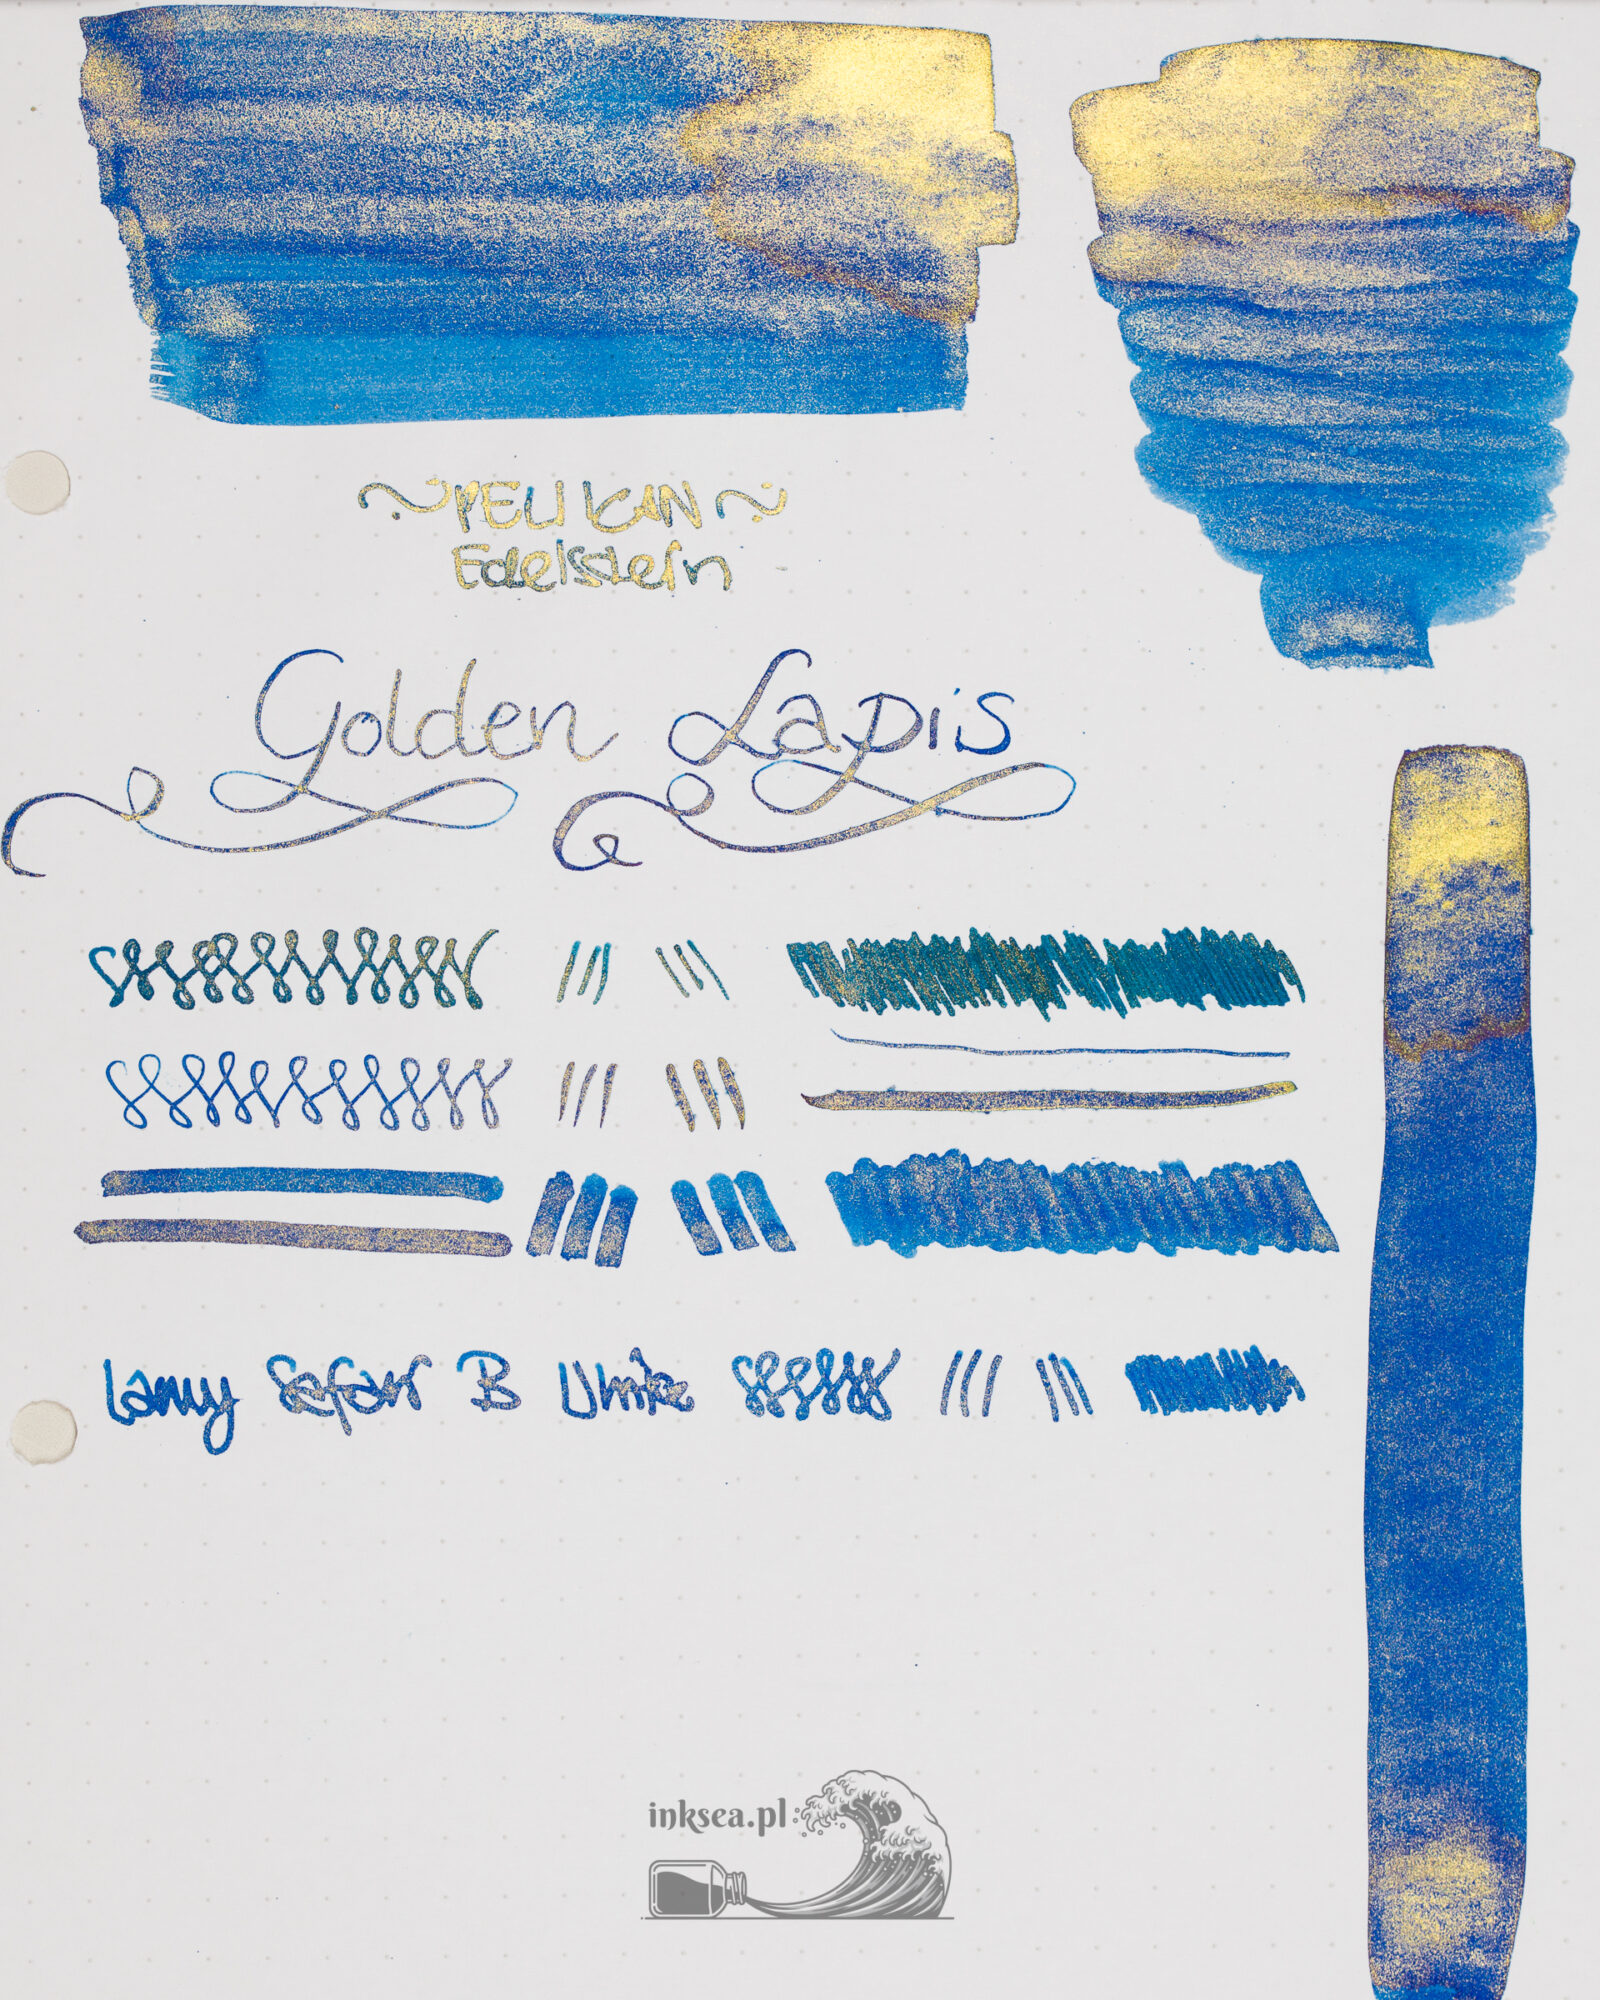 ~PELIKAN~
Edelstein
Golden Lapis
Lamy Safari B
inksea.pl